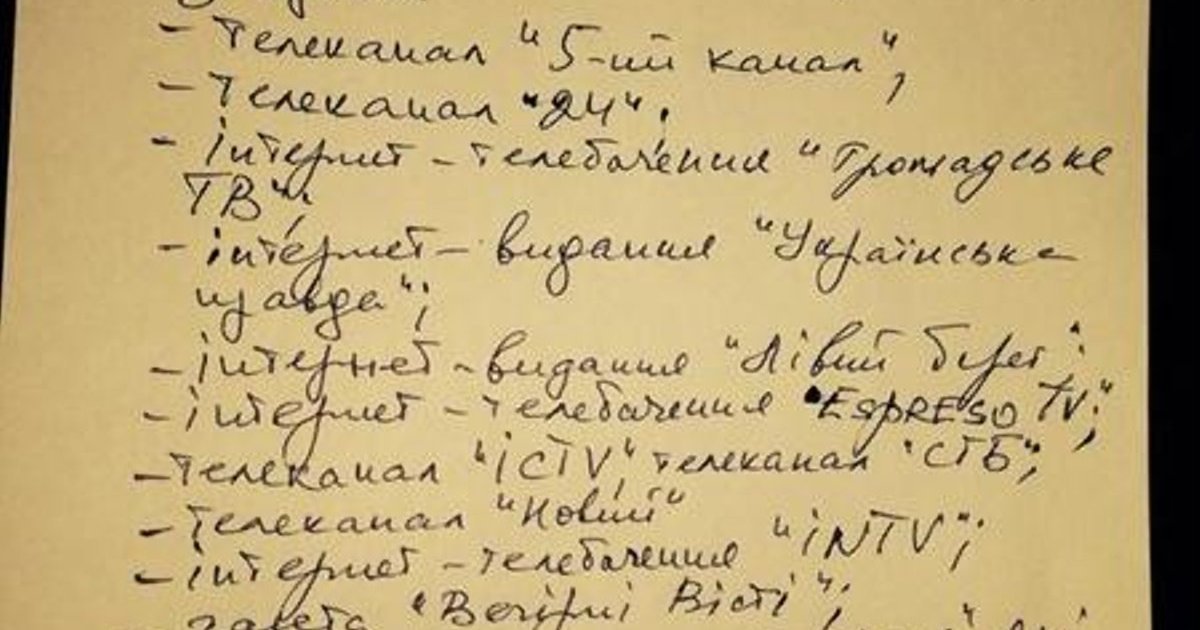 - Телеканал "5-ий канал",
- Телеканал "24".
- інтернет - телебачення "Громадське
ТВ";
- інтернет - видання "Українська
правда";
- інтернет - видання "Лівий берег";
- інтернет - телебачення "ESPRESO TV;"
- телеканал "ICTV", телеканал "СТБ";
- телеканал "Новий"
- інтернет - телебачення "iNTV";
газета "Вечірні Вісті";